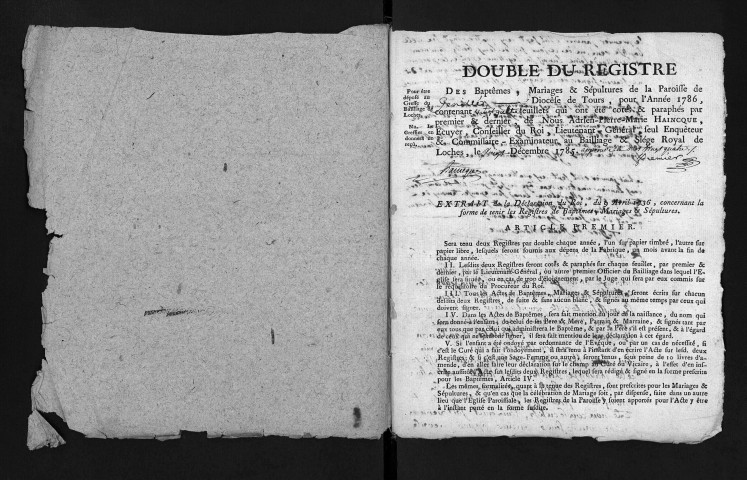 DOUBLE DU REGISTRE
Pour être
déposé au
Greffe du
Bailliage de
Loches.
DES Baptêmes, Mariages & Sépultures de la Paroisse de
Diocèse de Tours, pour l'Année 1786,
contenant feuillets qui ont été cotés & paraphés par
premier & dernier, de Nous Adrien-Pierre-Marie HAINCQUE,
Ecuyer, Conseiller du Roi, Lieutenant-Général, seul Enquêteur
& Commissaire-Examinateur au Bailliage & Siége Royal de
Loches, le Décembre 1785.
premier
EXTRAIT de la Déclaration du Roi, du 9 Avril 1736, concernant la
forme de tenir les Registres de Baptêmes, Mariages & Sépultures.
ARTICLE PREMIER.
Sera tenu deux Registres par double chaque année, l'un sur papier timbré, l'autre sur
papier libre, lesquels seront fournis aux dépens de la Fabrique, un mois avant la fin de
chaque année.
II. Lesdits deux Registres seront cotés & paraphés sur chaque feuillet, par premier &
dernier, par le Lieutenant-Général, ou autre premier Officier du Bailliage dans lequel l'E-
glise sera située, ou en cas de trop d'éloignement, par le Juge qui sera par eux commis sur
le requisitoire du Procureur du Roi.
III. Tous les Actes de Baptêmes, Mariages & Sépultures, seront écrits sur chacun
desdits deux Registres, de suite & sans aucun blanc, & signés au même temps par ceux qui
doivent signer.
IV. Dans les Actes de Baptêmes, sera fait mention du jour de la naissance, du nom qui
sera donné à l'enfant, de celui de ses Pere & Mere, Parrain & Marraine, & signés tant par
eux tous que par celui qui administrera le Baptême, & par le Pere s'il est présent, & à l'égard
de ceux qui ne sçauront signer, il sera fait mention de leur déclaration à cet égard.
V. Si l'enfant a été ondoyé par ordonnance de l'Evêque, ou par un cas de nécessité, si
c'est le Curé qui a fait l'ondoyement, il sera tenu à l'instant d'en écrire l'Acte sur lesd. deux
Registres, & si c'est une Sage-Femme ou autre, seront tenus, sous peine de 10 livres d'a-
mende, d'en aller faire leur déclaration sur le champ au Curé ou Vicaire, à l'effet d'en ins-
crire aussitôt l'acte sur lesdits deux Registres, lequel sera rédigé & signé en la forme prescrite
pour les Baptêmes, Article IV.
Les mêmes formalités, quant à la tenue des Registres, sont prescrites pour les Mariages &
Sépultures, & qu'en cas que la célébration de Mariage soit, par dispense, faite dans un autre
lieu que l'Eglise Paroissiale, les Registres de la Paroisse y soient apportés pour l'Acte y être
à l'instant porté en la forme susdite.